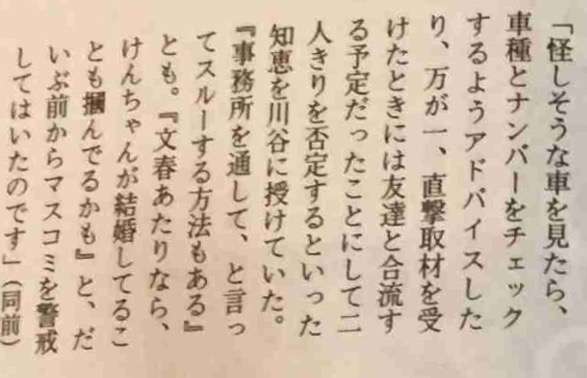 「怪しそうな車を見たら、
車種とナンバーをチェック
するようアドバイスした
り、万が一、直撃取材を受
けたときには友達と合流す
る予定だったことにして二
人きりを否定するといった
知恵を川谷に授けていた。
『事務所を通して、と言っ
てスルーする方法もある』
とも。『文春あたりなら、
けんちゃんが結婚してるこ
とも摑んでるかも』と、だ
いぶ前からマスコミを警戒
してはいたのです」（同前）